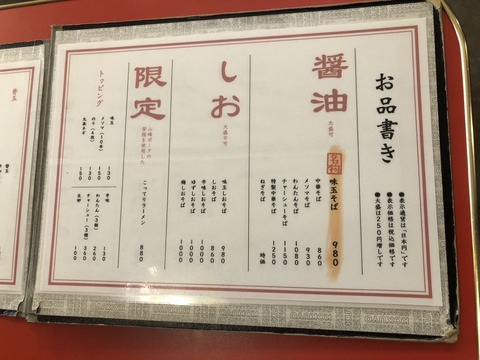 お品書き
●表示通貨は、「日本円」です
●表示価格は税込価格です
●大盛は250円増しです
醤油
大盛可
名物 味玉そば 980
中華そば 860
メンマそば 930
わんたんそば 1080
チャーシューそば 1150
特製中華そば 1250
ねぎそば 時価
しお
大盛不可
味玉しおそば 980
しおそば 860
辛味しおそば 1000
ゆずしおそば 1000
梅しおそば 1000
限定
背脂を使用した
こってりラーメン 880
トッピング
味玉 130
メンマ(10本) 150
のり(4枚) 130
九条ネギ 150
辛味 130
わんたん(3個) 260
チャーシュー(3個) 360
生卵 100
替玉